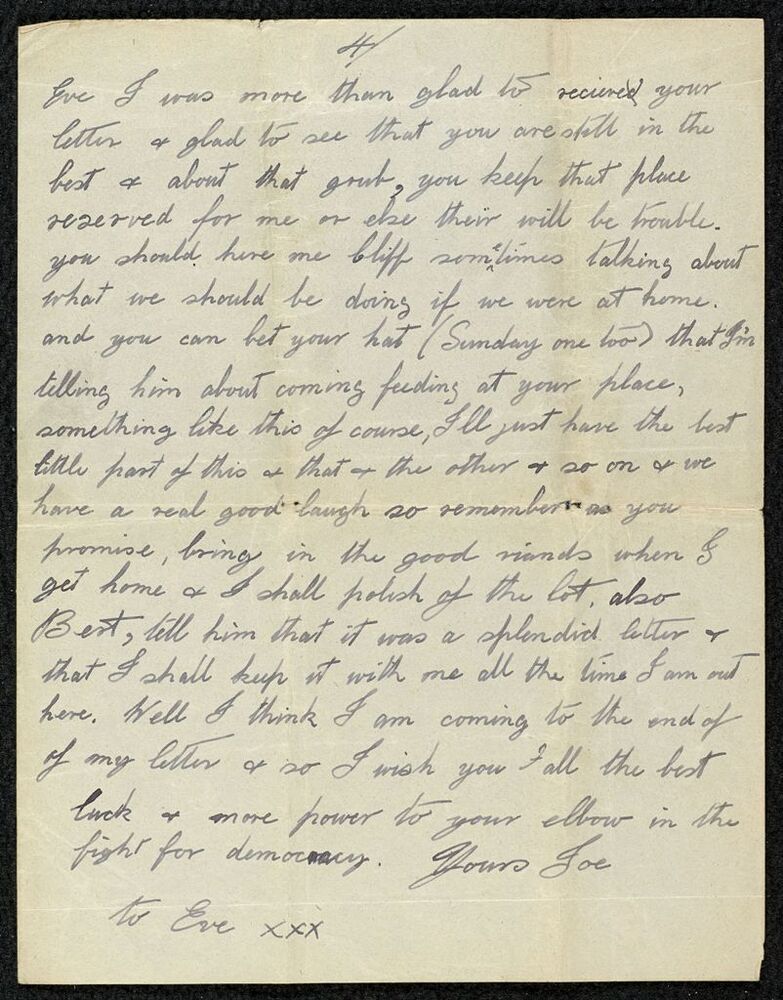 4/
Eve I was more than glad to recieved your
letter & glad to see that you are still in the
best & about that grub, you keep that place
reserved for me or else their will be trouble.
you should here me & Cliff sometimes talking about
what we should be doing if we were at home.
and you can bet your hat (Sunday one too) that I'm
telling him about coming feeding at your place,
something like this of course, I'll just have the best
little part of this & that & the other & so on & we
have a real good laugh so remember as you
promise, bring in the good viands when I
get home & I shall polish of the lot. also
Bert, tell him that it was a splendid letter &
that I shall keep it with me all the time I am out
here. Well I think I am coming to the end of
of my letter & so I wish you all the best
luck & more power to your elbow in the
fight for democracy. Yours Joe
to Eve xxx